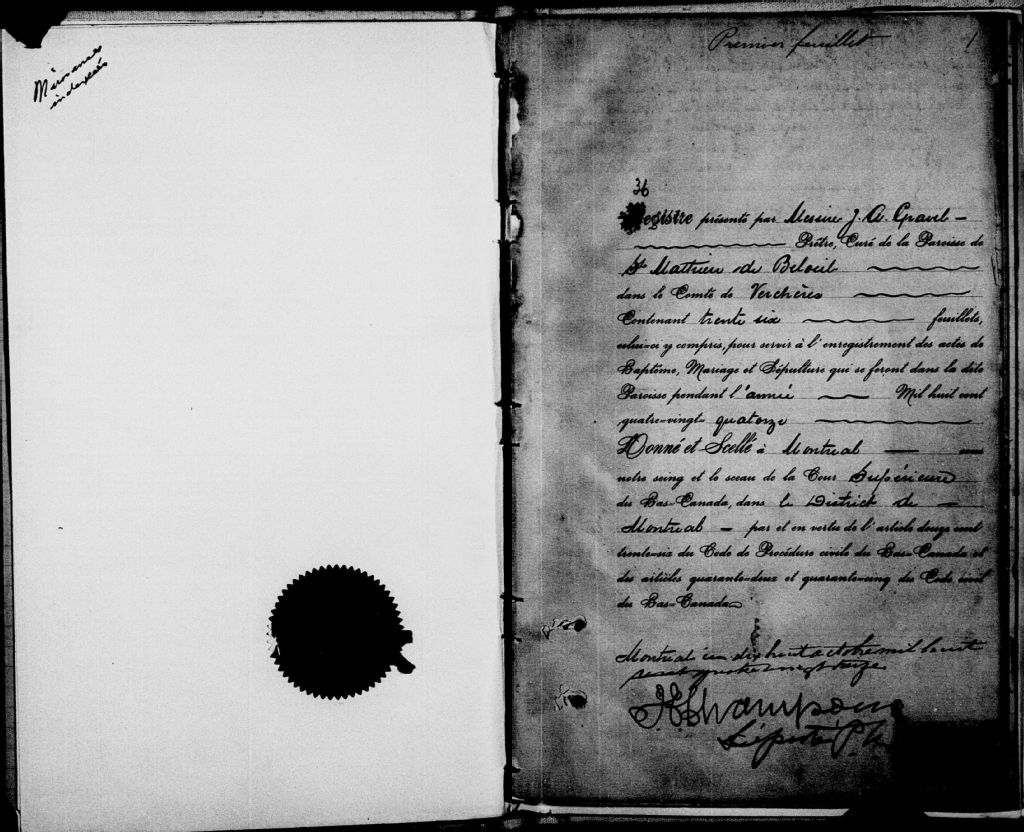 Premier feuillet 1
36
Registre présenté par Messire J. A. Gravel
Prêtre, Curé de la Paroisse de
St Mathieu de Beloeil
dans le Comté de Verchères
Contenant trente six feuillets,
celui-ci y compris, pour servir à l'enregistrement des actes de
Baptême, Mariage et Sépulture qui se feront dans la dite
Paroisse pendant l'année Mil huit cent
quatre-vingt- quatorze
Donné et Scellé à Montréal sous
notre seing et le sceau de la Cour Supérieure
du Bas-Canada, dans le District de
Montréal par et en vertu de l'article douze cent
trente-six du Code de Procédure civile du Bas-Canada et
des articles quarante-deux et quarante-cinq du Code civil
du Bas-Canada
Montréal ce dix huit octobre mil huit
cent quatre vingt treize
Député P.